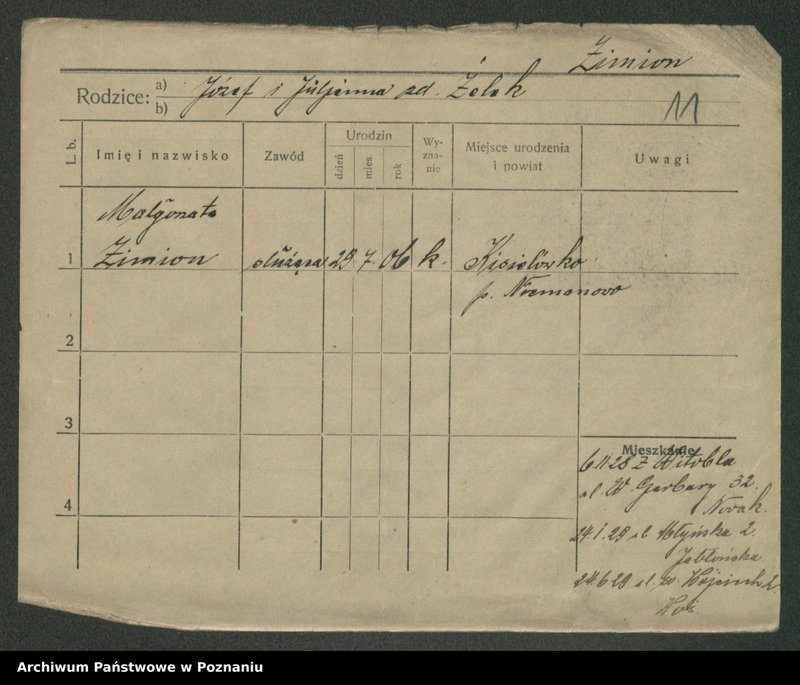 Zimion
Rodzice: a) Józef i Juljanna zd. Żelek
b)
11
L. b.
Imię i nazwisko
Zawód
Urodzin
dzień
mies.
rok
Wy-
zna-
nie
Miejsce urodzenia
i powiat
Uwagi
Małgorzata
1 Zimion służąca 29 7. 06 k. Kisielówko
p.
2
3
Mieszkanie
6.11.28 z Witobla
ul. W. Garbary 32.
Novak.
4
24.1.29 ul Młyńska 2.
Jabłońska
24.6.29 ul. św. Wojciech 2.
Archiwum Państwowe w Poznaniu